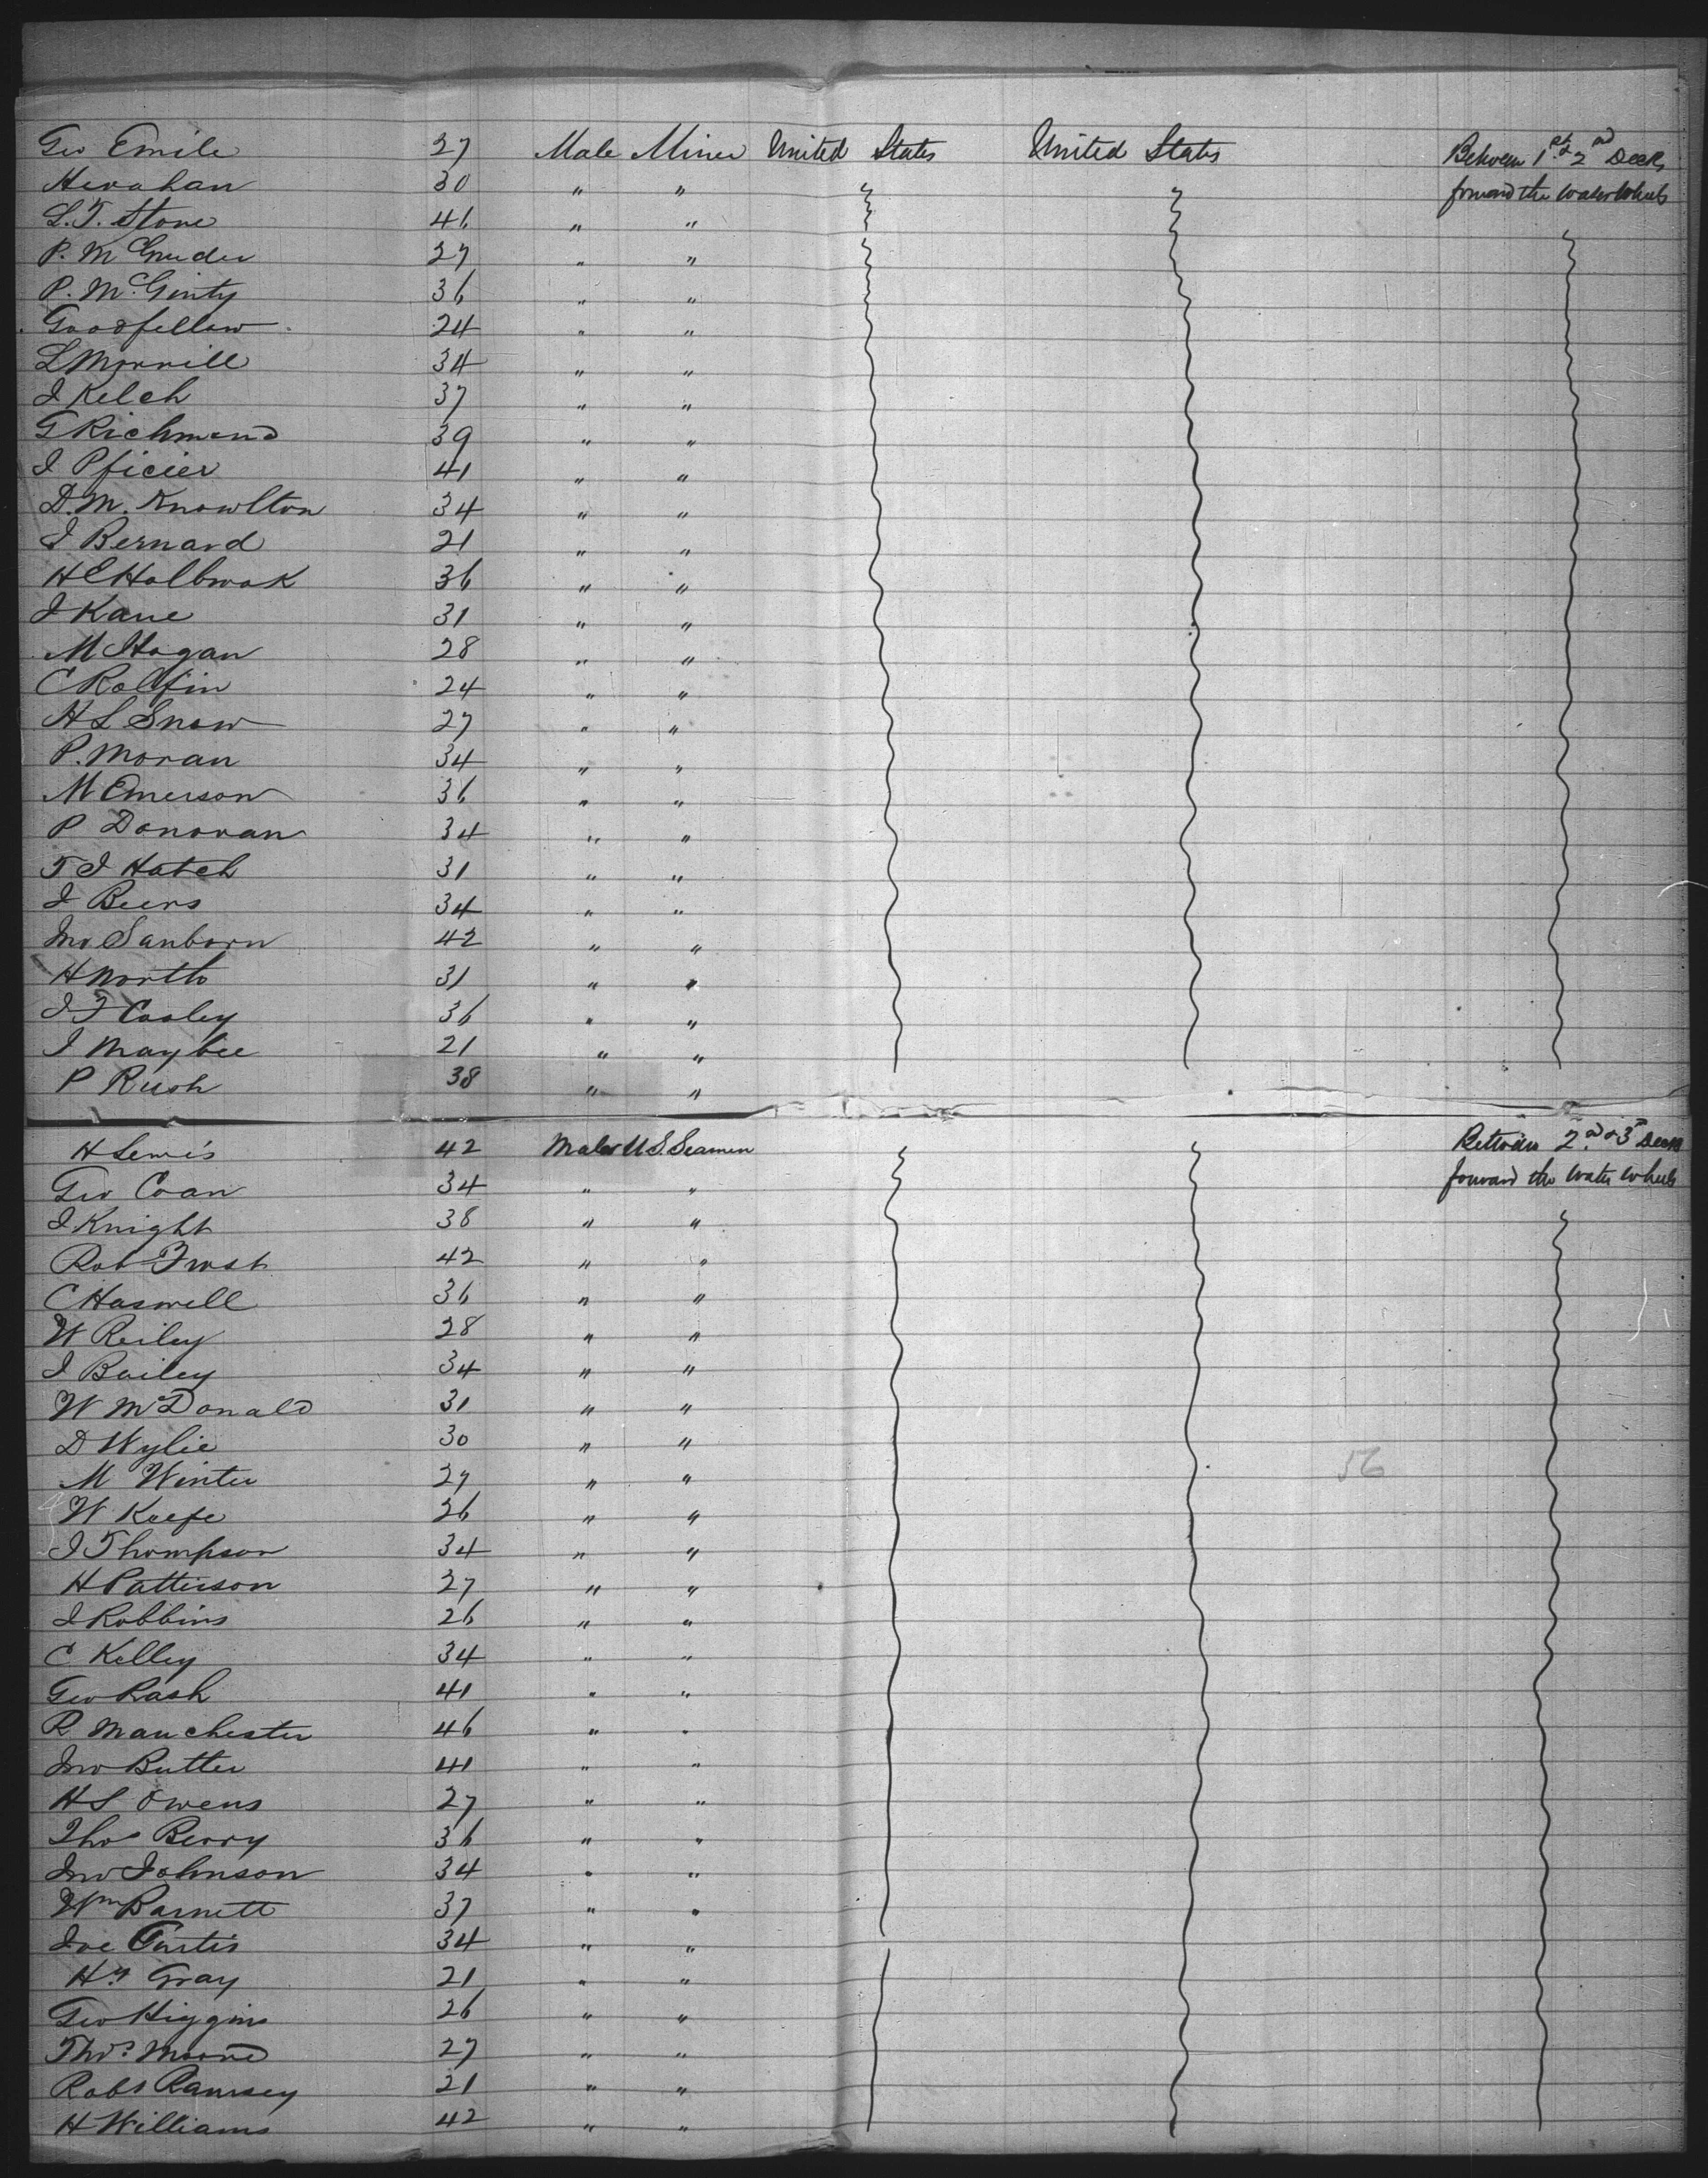 Geo Emile 27 Male Miner United States United States Between 1st & 2nd Decks
Herahan 30 " " forward the Water Wheels
L. T. Stone 46 " "
P. McGruder 27 " "
P. McGinty 36 " "
Goodfellow 24 " "
L Morrill 34 " "
J Kelch 37 " "
G Richmond 39 " "
J Pficier 41 " "
D. M. Knowlton 34 " "
J Bernard 21 " "
H E Holbrook 36 " "
J Kane 31 " "
M Hogan 28 " "
C Rolfin 24 " "
H L Snow 27 " "
P. Moran 34 " "
M Emerson 36 " "
P Donovan 34 " "
T J Hatch 31 " "
J Beers 34 " "
Jno Sanborn 42 " "
H North 31 " "
J F Cooley 36 " "
J Maybee 21 " "
P Rush 38 " "
H Lewis 42 Males U.S. Seamen Between 2nd & 3d Deck
Geo Coan 34 " " forward the Water Wheels
J Knight 38 " "
Rob Frost 42 " "
C Haswell 36 " "
W Reiley 28 " "
J Bailey 34 " "
W McDonald 31 " "
D Wylie 30 " "
M Winter 27 " "
W Keefe 26 " "
J Thompson 34 " "
H Patterson 27 " "
J Robbins 26 " "
C Kelley 34 " "
Geo Rash 41 " "
R Manchester 46 " "
Jno Butter 41 " "
H S Owens 27 " "
Thos Berry 36 " "
Jno Johnson 34 " "
Wm Barnett 37 " "
Joe Curtis 34 " "
Hy Gray 21 " "
Geo Higgins 26 " "
Thos. Moore 27 " "
Robt Ramsey 21 " "
H Williams 42 " "